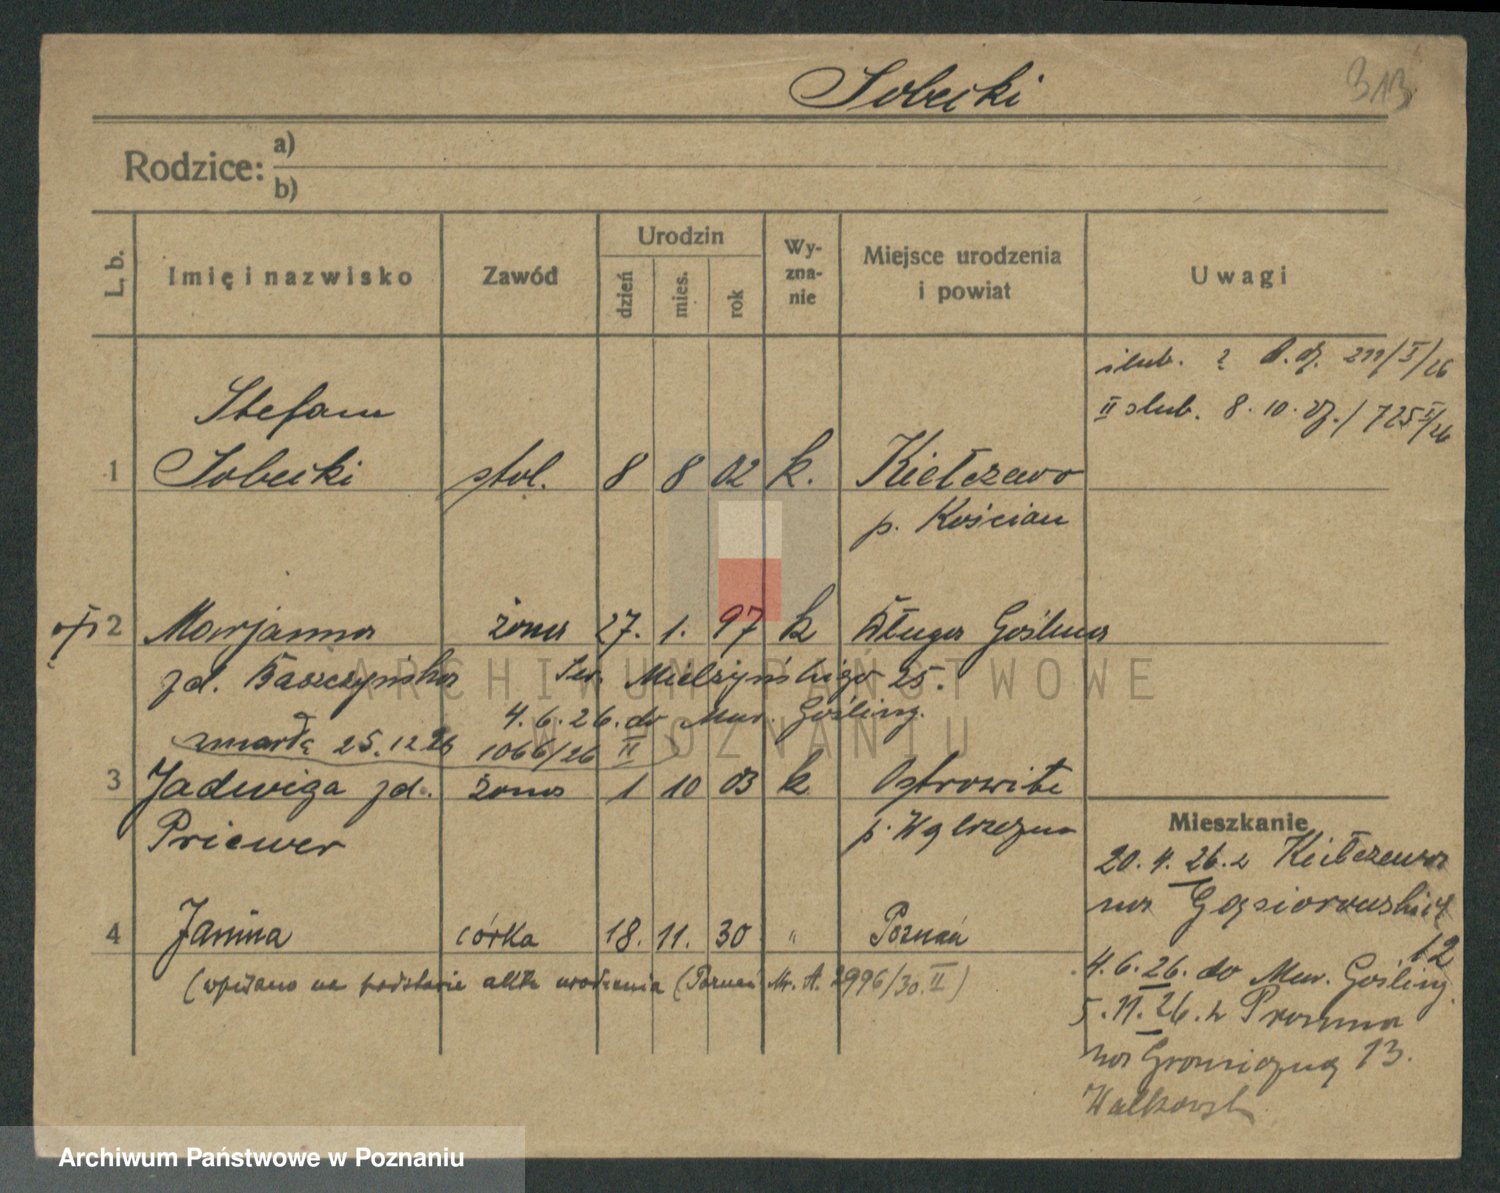 Sobecki
313
Rodzice: a)
b)
L. b.
Imię i nazwisko
Zawód
Urodzin
dzień
mies.
rok
Wy-
zna-
nie
Miejsce urodzenia
i powiat
Uwagi
slub.
II slub. 8.10.
Stefan
1 Sobecki stol. 8 8 02 k. Kiełczewo
p. Kościan
2 Marjanna żona 27. 1. 97 k Długa Goślina
zd. Mielżyńskiego 25.
4.6.26. do Mur. Gośling.
zmarła 25.12.26 1066/26 II
3 Jadwiga zd. żona 1 10 03 k Ostrowite
Priewer
p.
Mieszkanie
20.4.26. z Kiełczewa
na Gąsiorowskich
12
4 Janina córka 18. 11. 30 " Poznań
(wpisano na podstawie aktu urodzenia (Poznań Nr. A. 2996/30. II)
4.6.26. do Mur. Gośling.
5.11.26. z
na Graniczną 13.
ARCHIWUM PAŃSTWOWE
W POZNANIU
Archiwum Państwowe w Poznaniu